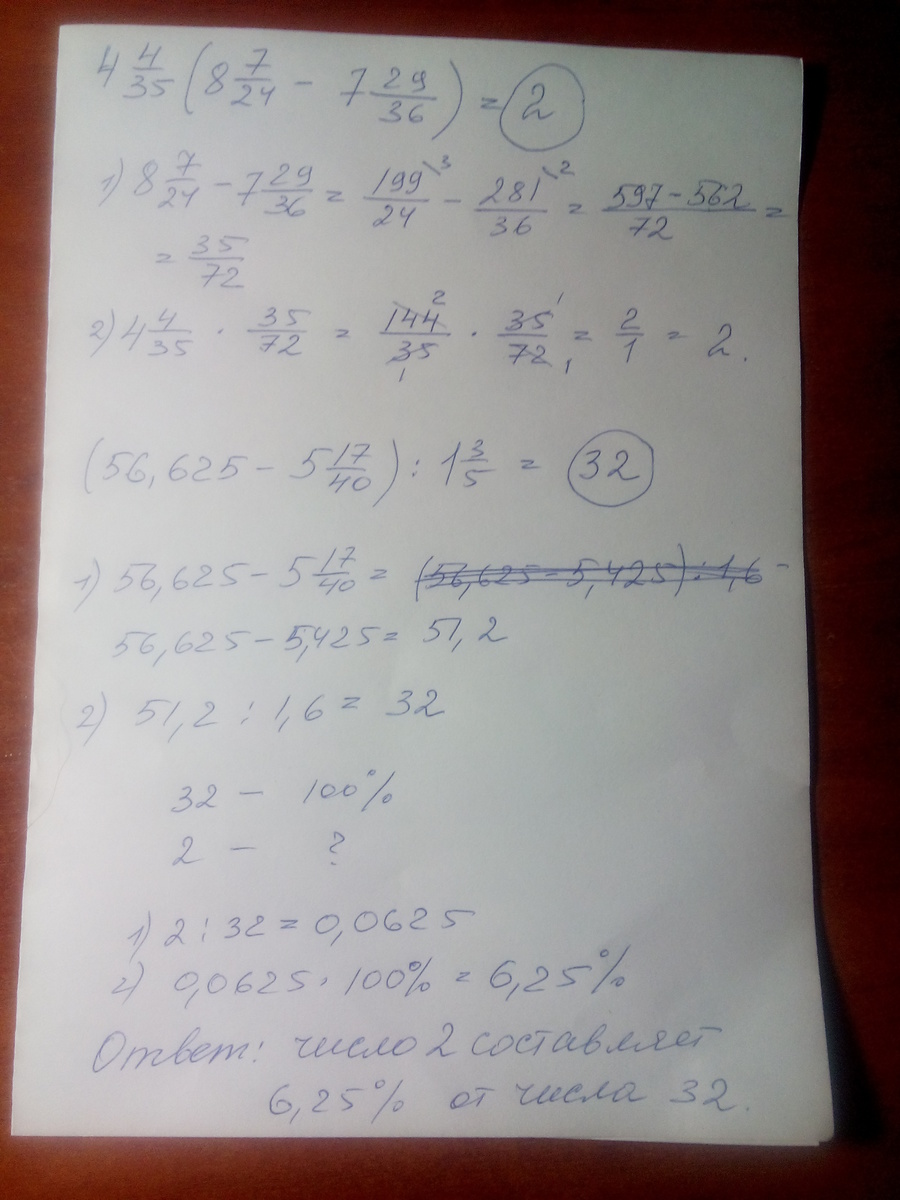 4 4/35 (8 7/24 − 7 29/36) = 2
1) 8 7/24 − 7 29/36 = 199\3/24 − 281\2/36 = 597−562/72 =
= 35/72
2) 4 4/35 · 35/72 = 144 2/35 1 · 35 1/72 1 = 2/1 = 2.
(56,625 − 5 17/40) : 1 3/5 = 32
1) 56,625 − 5 17/40 = (56,625 − 5,425) : 1,6 −
56,625 − 5,425 = 51,2
2) 51,2 : 1,6 = 32
32 − 100%
2 − ?
1) 2 : 32 = 0,0625
2) 0,0625 · 100% = 6,25%
Ответ: число 2 составляет
6,25% от числа 32.